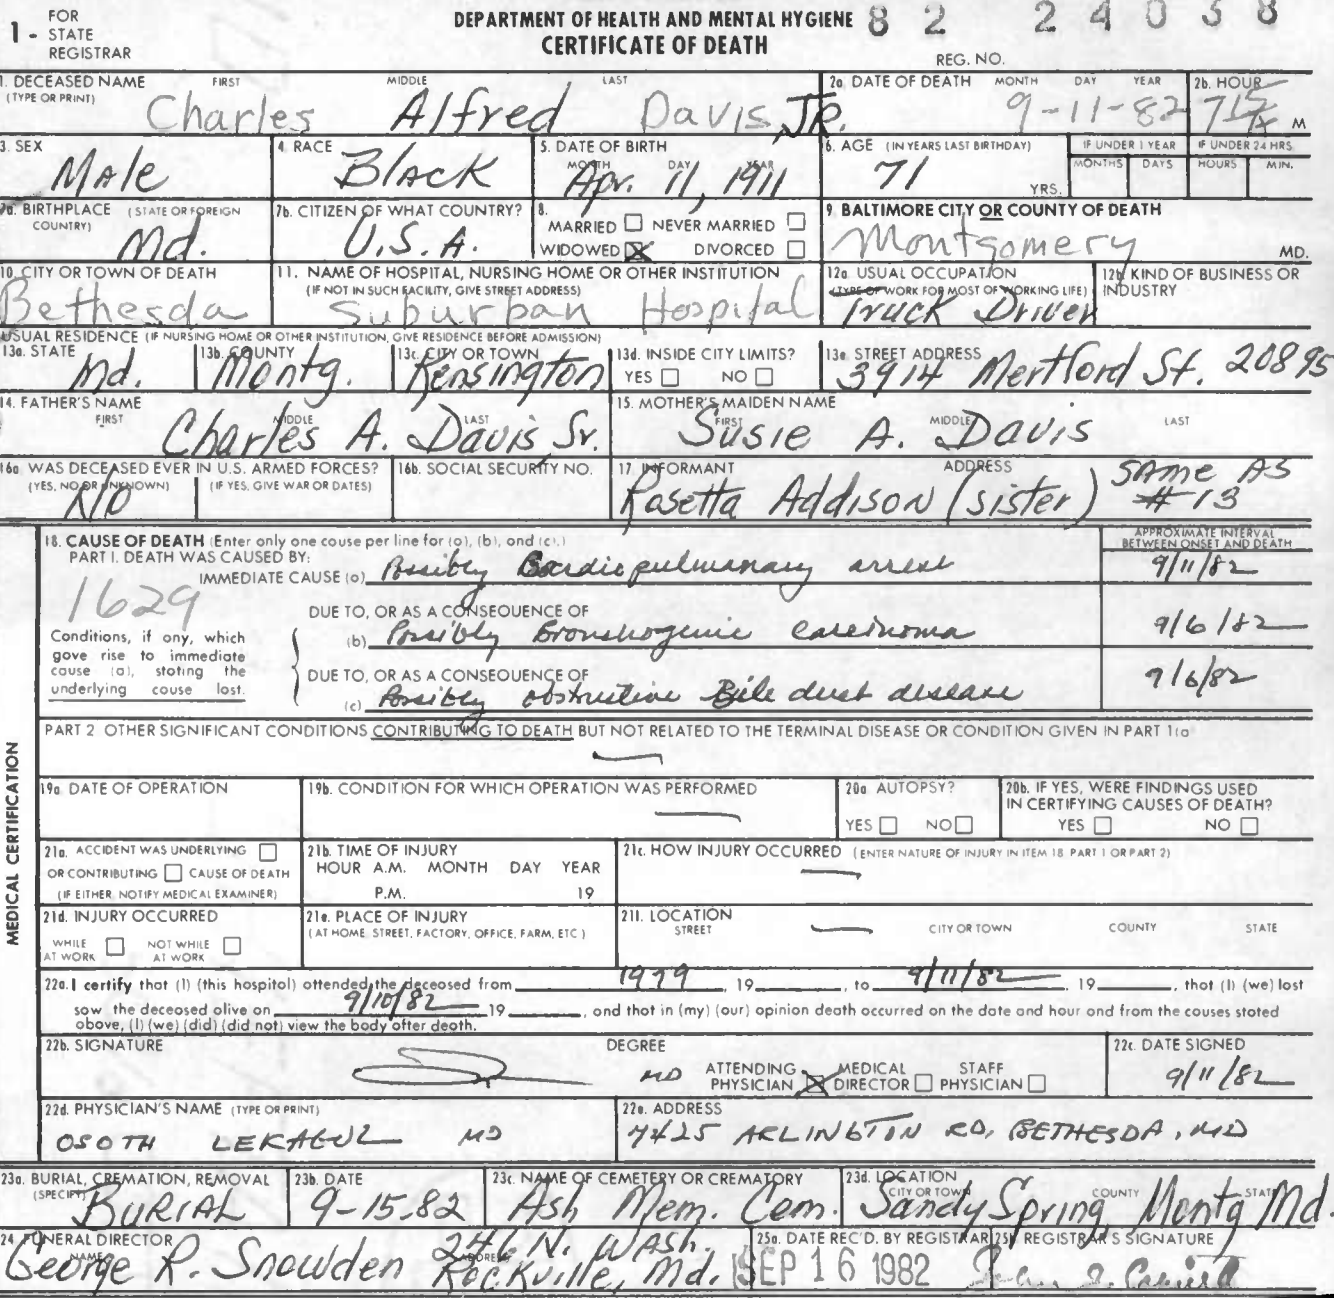 1 - FOR STATE REGISTRAR
DEPARTMENT OF HEALTH AND MENTAL HYGIENE
CERTIFICATE OF DEATH
82 24038
REG. NO.
1. DECEASED NAME (TYPE OR PRINT) FIRST MIDDLE LAST
Charles Alfred Davis, JR.
2a. DATE OF DEATH MONTH DAY YEAR
9-11-82
2b. HOUR
M
3. SEX
Male
4. RACE
Black
5. DATE OF BIRTH MONTH DAY YEAR
Apr. 11, 1911
6. AGE (IN YEARS LAST BIRTHDAY)
71 YRS.
IF UNDER 1 YEAR MONTHS DAYS
IF UNDER 24 HRS. HOURS MIN.
7a. BIRTHPLACE (STATE OR FOREIGN COUNTRY)
Md.
7b. CITIZEN OF WHAT COUNTRY?
U.S.A.
8. MARRIED NEVER MARRIED
WIDOWED X DIVORCED
9. BALTIMORE CITY OR COUNTY OF DEATH
Montgomery MD.
10. CITY OR TOWN OF DEATH
Bethesda
11. NAME OF HOSPITAL, NURSING HOME OR OTHER INSTITUTION
(IF NOT IN SUCH FACILITY, GIVE STREET ADDRESS)
Suburban Hospital
12a. USUAL OCCUPATION
(TYPE OF WORK FOR MOST OF WORKING LIFE)
Truck Driver
12b. KIND OF BUSINESS OR INDUSTRY
USUAL RESIDENCE (IF NURSING HOME OR OTHER INSTITUTION, GIVE RESIDENCE BEFORE ADMISSION)
13a. STATE
Md.
13b. COUNTY
Montg.
13c. CITY OR TOWN
Kensington
13d. INSIDE CITY LIMITS?
YES NO
13e. STREET ADDRESS
3914 Mertford St. 20895
14. FATHER'S NAME FIRST MIDDLE LAST
Charles A. Davis Sr.
15. MOTHER'S MAIDEN NAME FIRST MIDDLE LAST
Susie A. Davis
16a. WAS DECEASED EVER IN U.S. ARMED FORCES?
(YES, NO OR UNKNOWN) (IF YES, GIVE WAR OR DATES)
NO
16b. SOCIAL SECURITY NO.
17. INFORMANT ADDRESS
Rosetta Addison (sister) SAME AS #13
18. CAUSE OF DEATH (Enter only one cause per line for (a), (b), and (c).)
PART I. DEATH WAS CAUSED BY:
APPROXIMATE INTERVAL BETWEEN ONSET AND DEATH
IMMEDIATE CAUSE (a) Possibly Cardiopulmonary arrest 9/11/82
1629
DUE TO, OR AS A CONSEQUENCE OF
(b) Possibly Bronchogenic carcinoma 9/6/82
Conditions, if any, which gave rise to immediate cause (a), stating the underlying cause last.
DUE TO, OR AS A CONSEQUENCE OF
(c) Possibly obstructive Bile duct disease 9/6/82
PART 2 OTHER SIGNIFICANT CONDITIONS CONTRIBUTING TO DEATH BUT NOT RELATED TO THE TERMINAL DISEASE OR CONDITION GIVEN IN PART 1(a)
MEDICAL CERTIFICATION
19a. DATE OF OPERATION
19b. CONDITION FOR WHICH OPERATION WAS PERFORMED
20a. AUTOPSY?
YES NO
20b. IF YES, WERE FINDINGS USED IN CERTIFYING CAUSES OF DEATH?
YES NO
21a. ACCIDENT WAS UNDERLYING
OR CONTRIBUTING CAUSE OF DEATH
(IF EITHER, NOTIFY MEDICAL EXAMINER)
21b. TIME OF INJURY
HOUR A.M. MONTH DAY YEAR
P.M. 19
21c. HOW INJURY OCCURRED (ENTER NATURE OF INJURY IN ITEM 18. PART 1 OR PART 2)
21d. INJURY OCCURRED
WHILE AT WORK NOT WHILE AT WORK
21e. PLACE OF INJURY
(AT HOME, STREET, FACTORY, OFFICE, FARM, ETC.)
21f. LOCATION
STREET CITY OR TOWN COUNTY STATE
22a. I certify that (I) (this hospital) attended the deceased from 1979, 19 , to 9/11/82, 19 , that (I) (we) lost
saw the deceased alive on 9/10/82 19 , and that in (my) (our) opinion death occurred on the date and hour and from the causes stated
above, (I) (we) (did) (did not) view the body after death.
22b. SIGNATURE DEGREE
MD ATTENDING PHYSICIAN X MEDICAL DIRECTOR STAFF PHYSICIAN
22c. DATE SIGNED
9/11/82
22d. PHYSICIAN'S NAME (TYPE OR PRINT)
OSOTH LEKAGUL MD
22e. ADDRESS
7425 ARLINGTON RD, BETHESDA, MD
23a. BURIAL, CREMATION, REMOVAL (SPECIFY)
BURIAL
23b. DATE
9-15-82
23c. NAME OF CEMETERY OR CREMATORY
Ash Mem. Cem.
23d. LOCATION CITY OR TOWN COUNTY STATE
Sandy Spring, Montg Md.
24. FUNERAL DIRECTOR NAME ADDRESS
George R. Snowden 246 N. WASh. Rockville, Md.
25a. DATE REC'D. BY REGISTRAR
SEP 16 1982
25b. REGISTRAR'S SIGNATURE